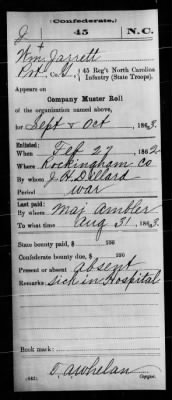 (Confederate.)
J 45 N.C.
Wm Jarrett
Pvt, Co. G, 45 Reg't North Carolina
Infantry (State Troops).
Appears on
Company Muster Roll
of the organization named above,
for Sept & Oct, 1863.
Enlisted:
When Feb 27, 1862
Where Rockingham Co
By whom J. H. Dillard
Period war
Last paid:
By whom Maj Ambler
To what time Aug 31, 1863.
State bounty paid, $ 100
Confederate bounty due, $ 100
Present or absent absent
Remarks: Sick in Hospital
Book mark:
(642) O. A. Whelan
Copyist.